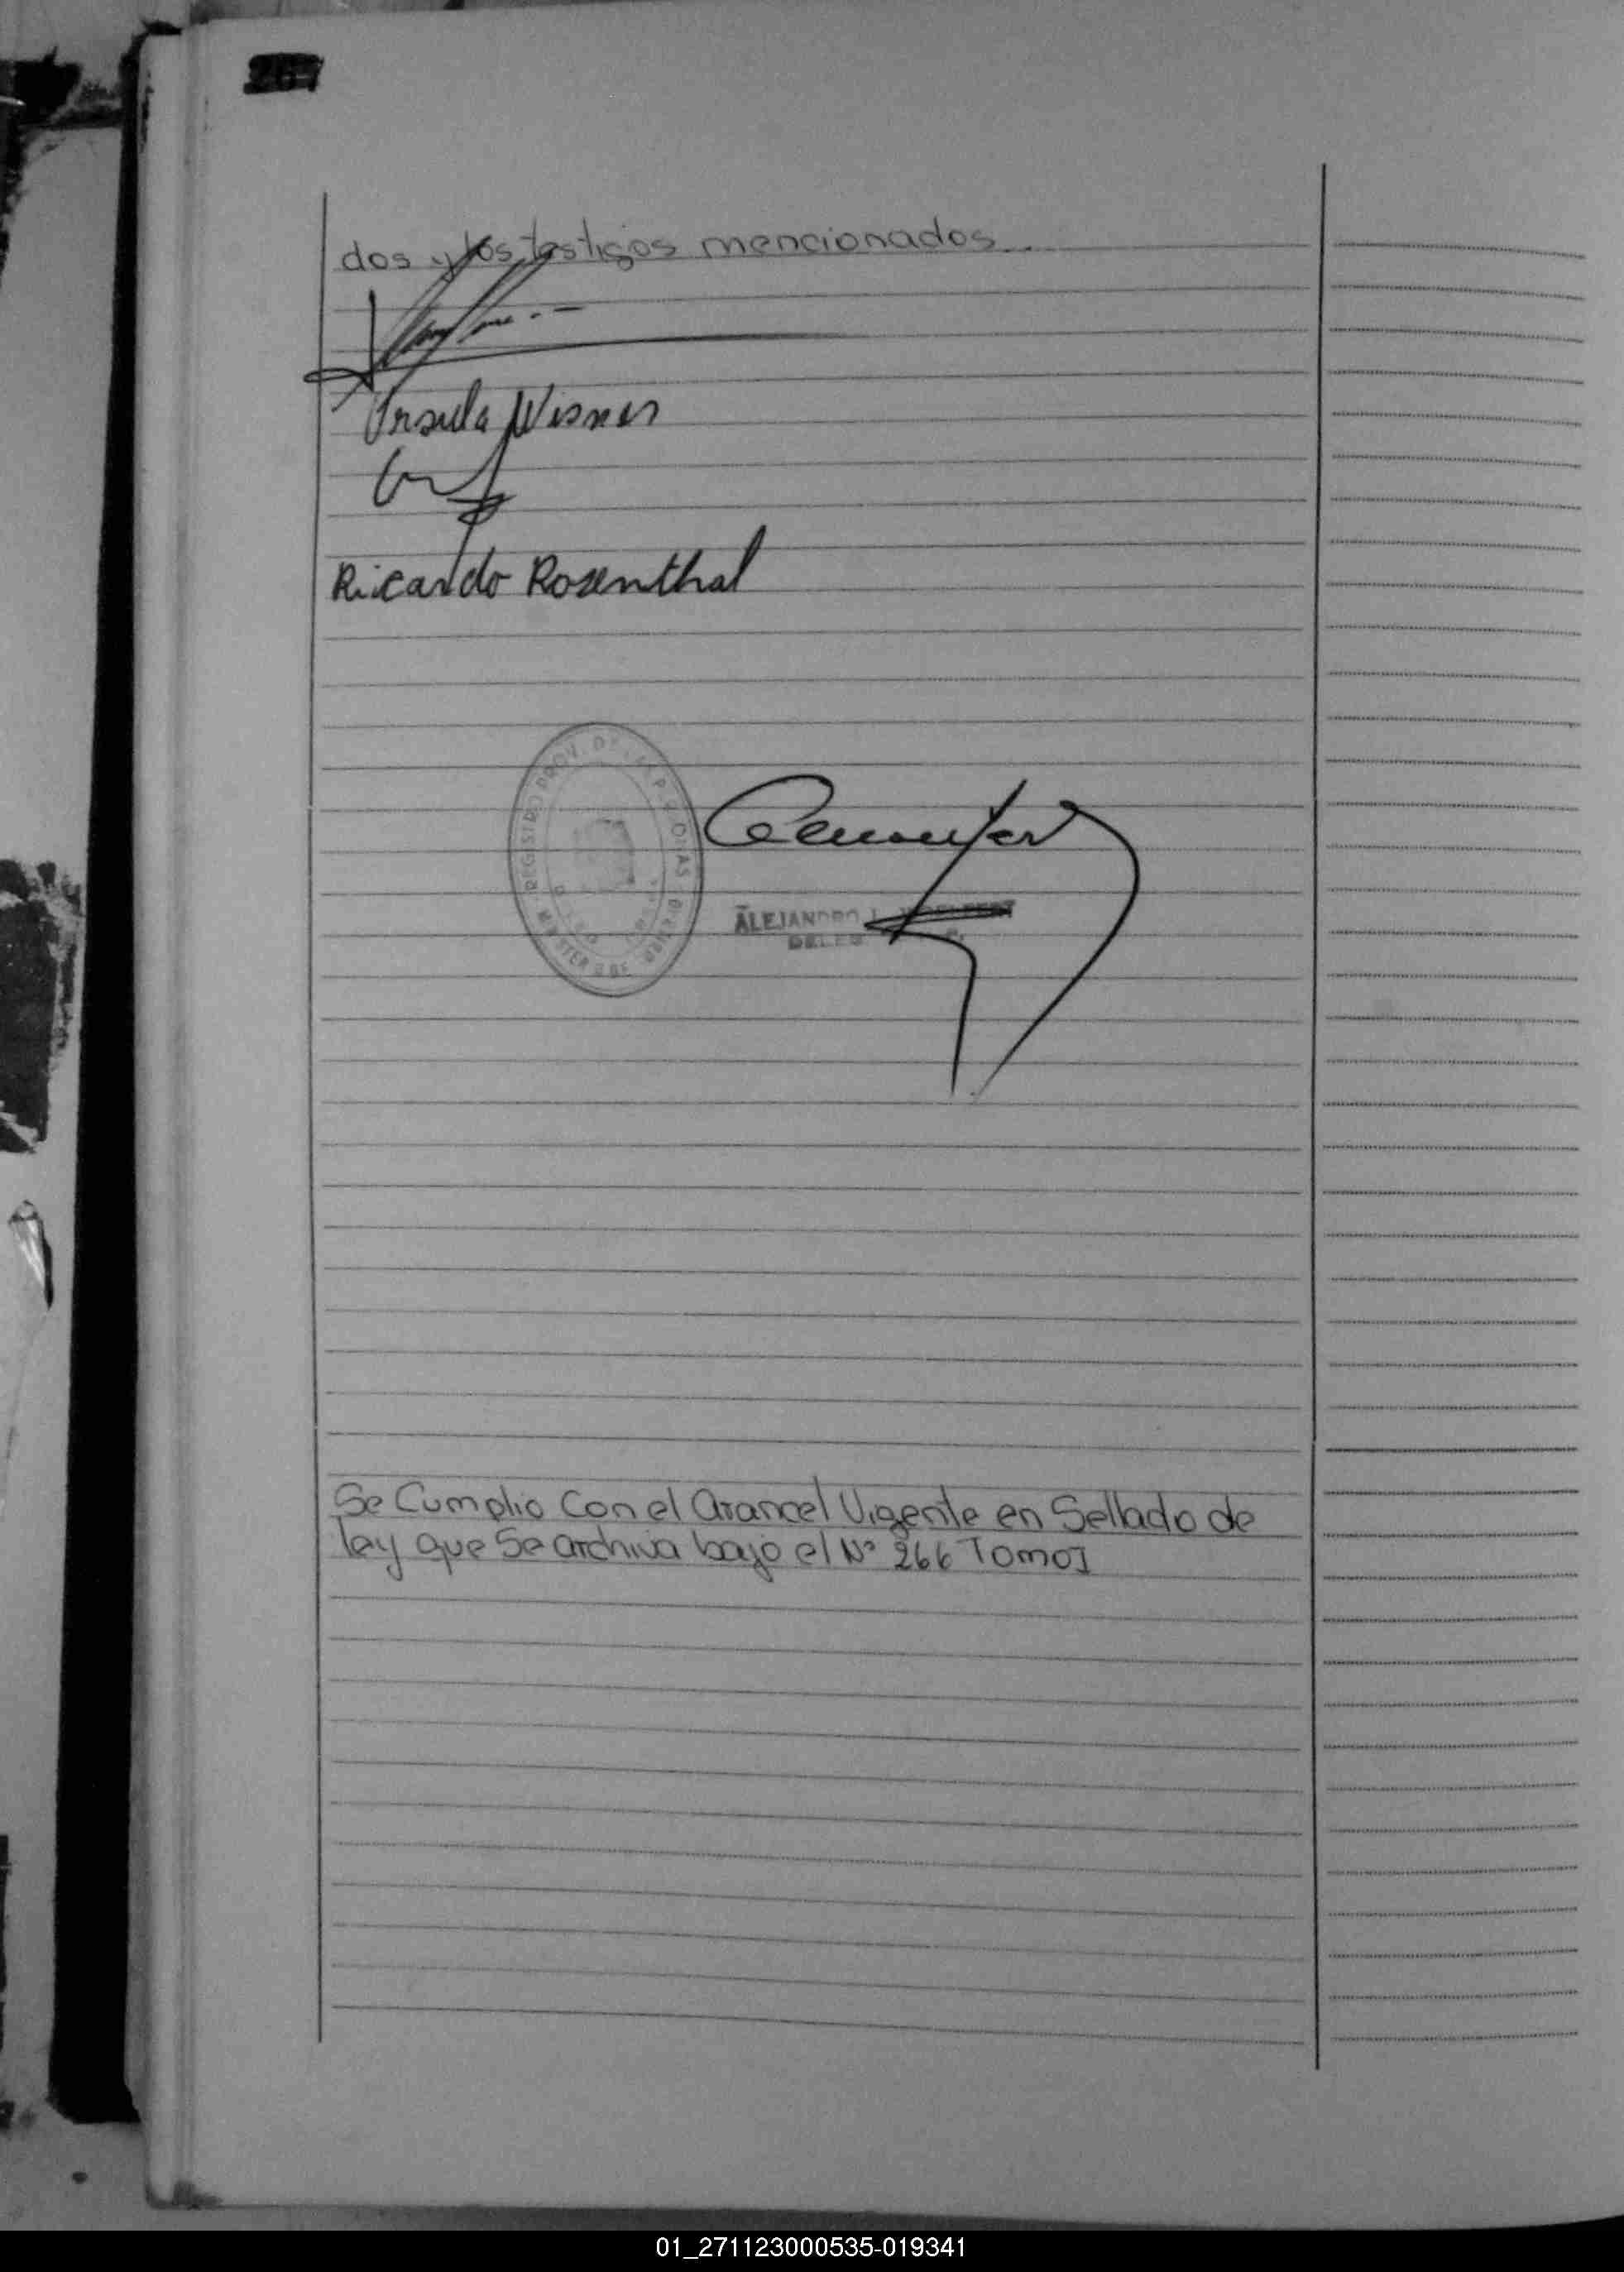 267
dos y los testigos mencionados
Ursula Wisner
Ricardo Rosenthal
REGISTRO PROV. DE LAS PERSONAS
MINISTERIO DE GOBIERNO
ALEJANDRO
Se Cumplio Con el Arancel Vigente en Sellado de
ley que Se archiva bajo el Nº 266 Tomo I
01_271123000535-019341